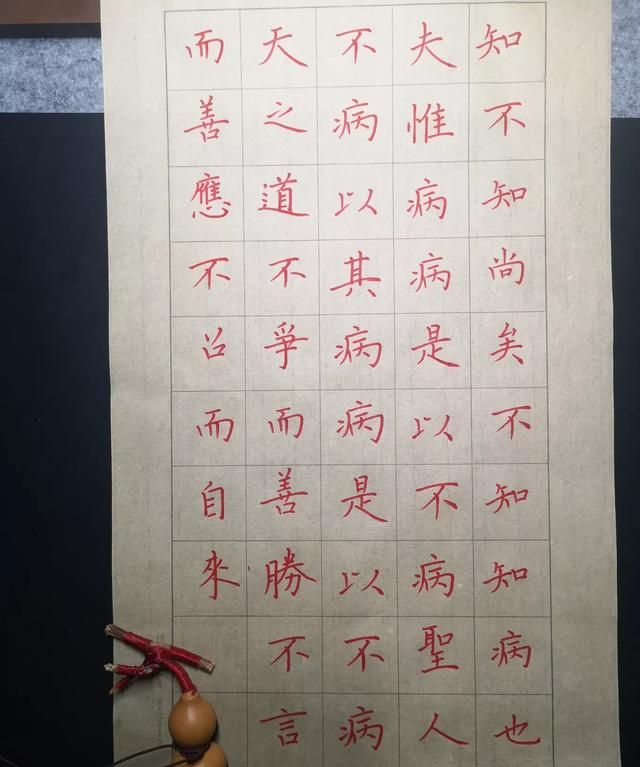 知不知尚矣不知知病也
夫惟病病是以不病聖人
不病以其病病是以不病
天之道不爭而善勝不言
而善應不召而自來